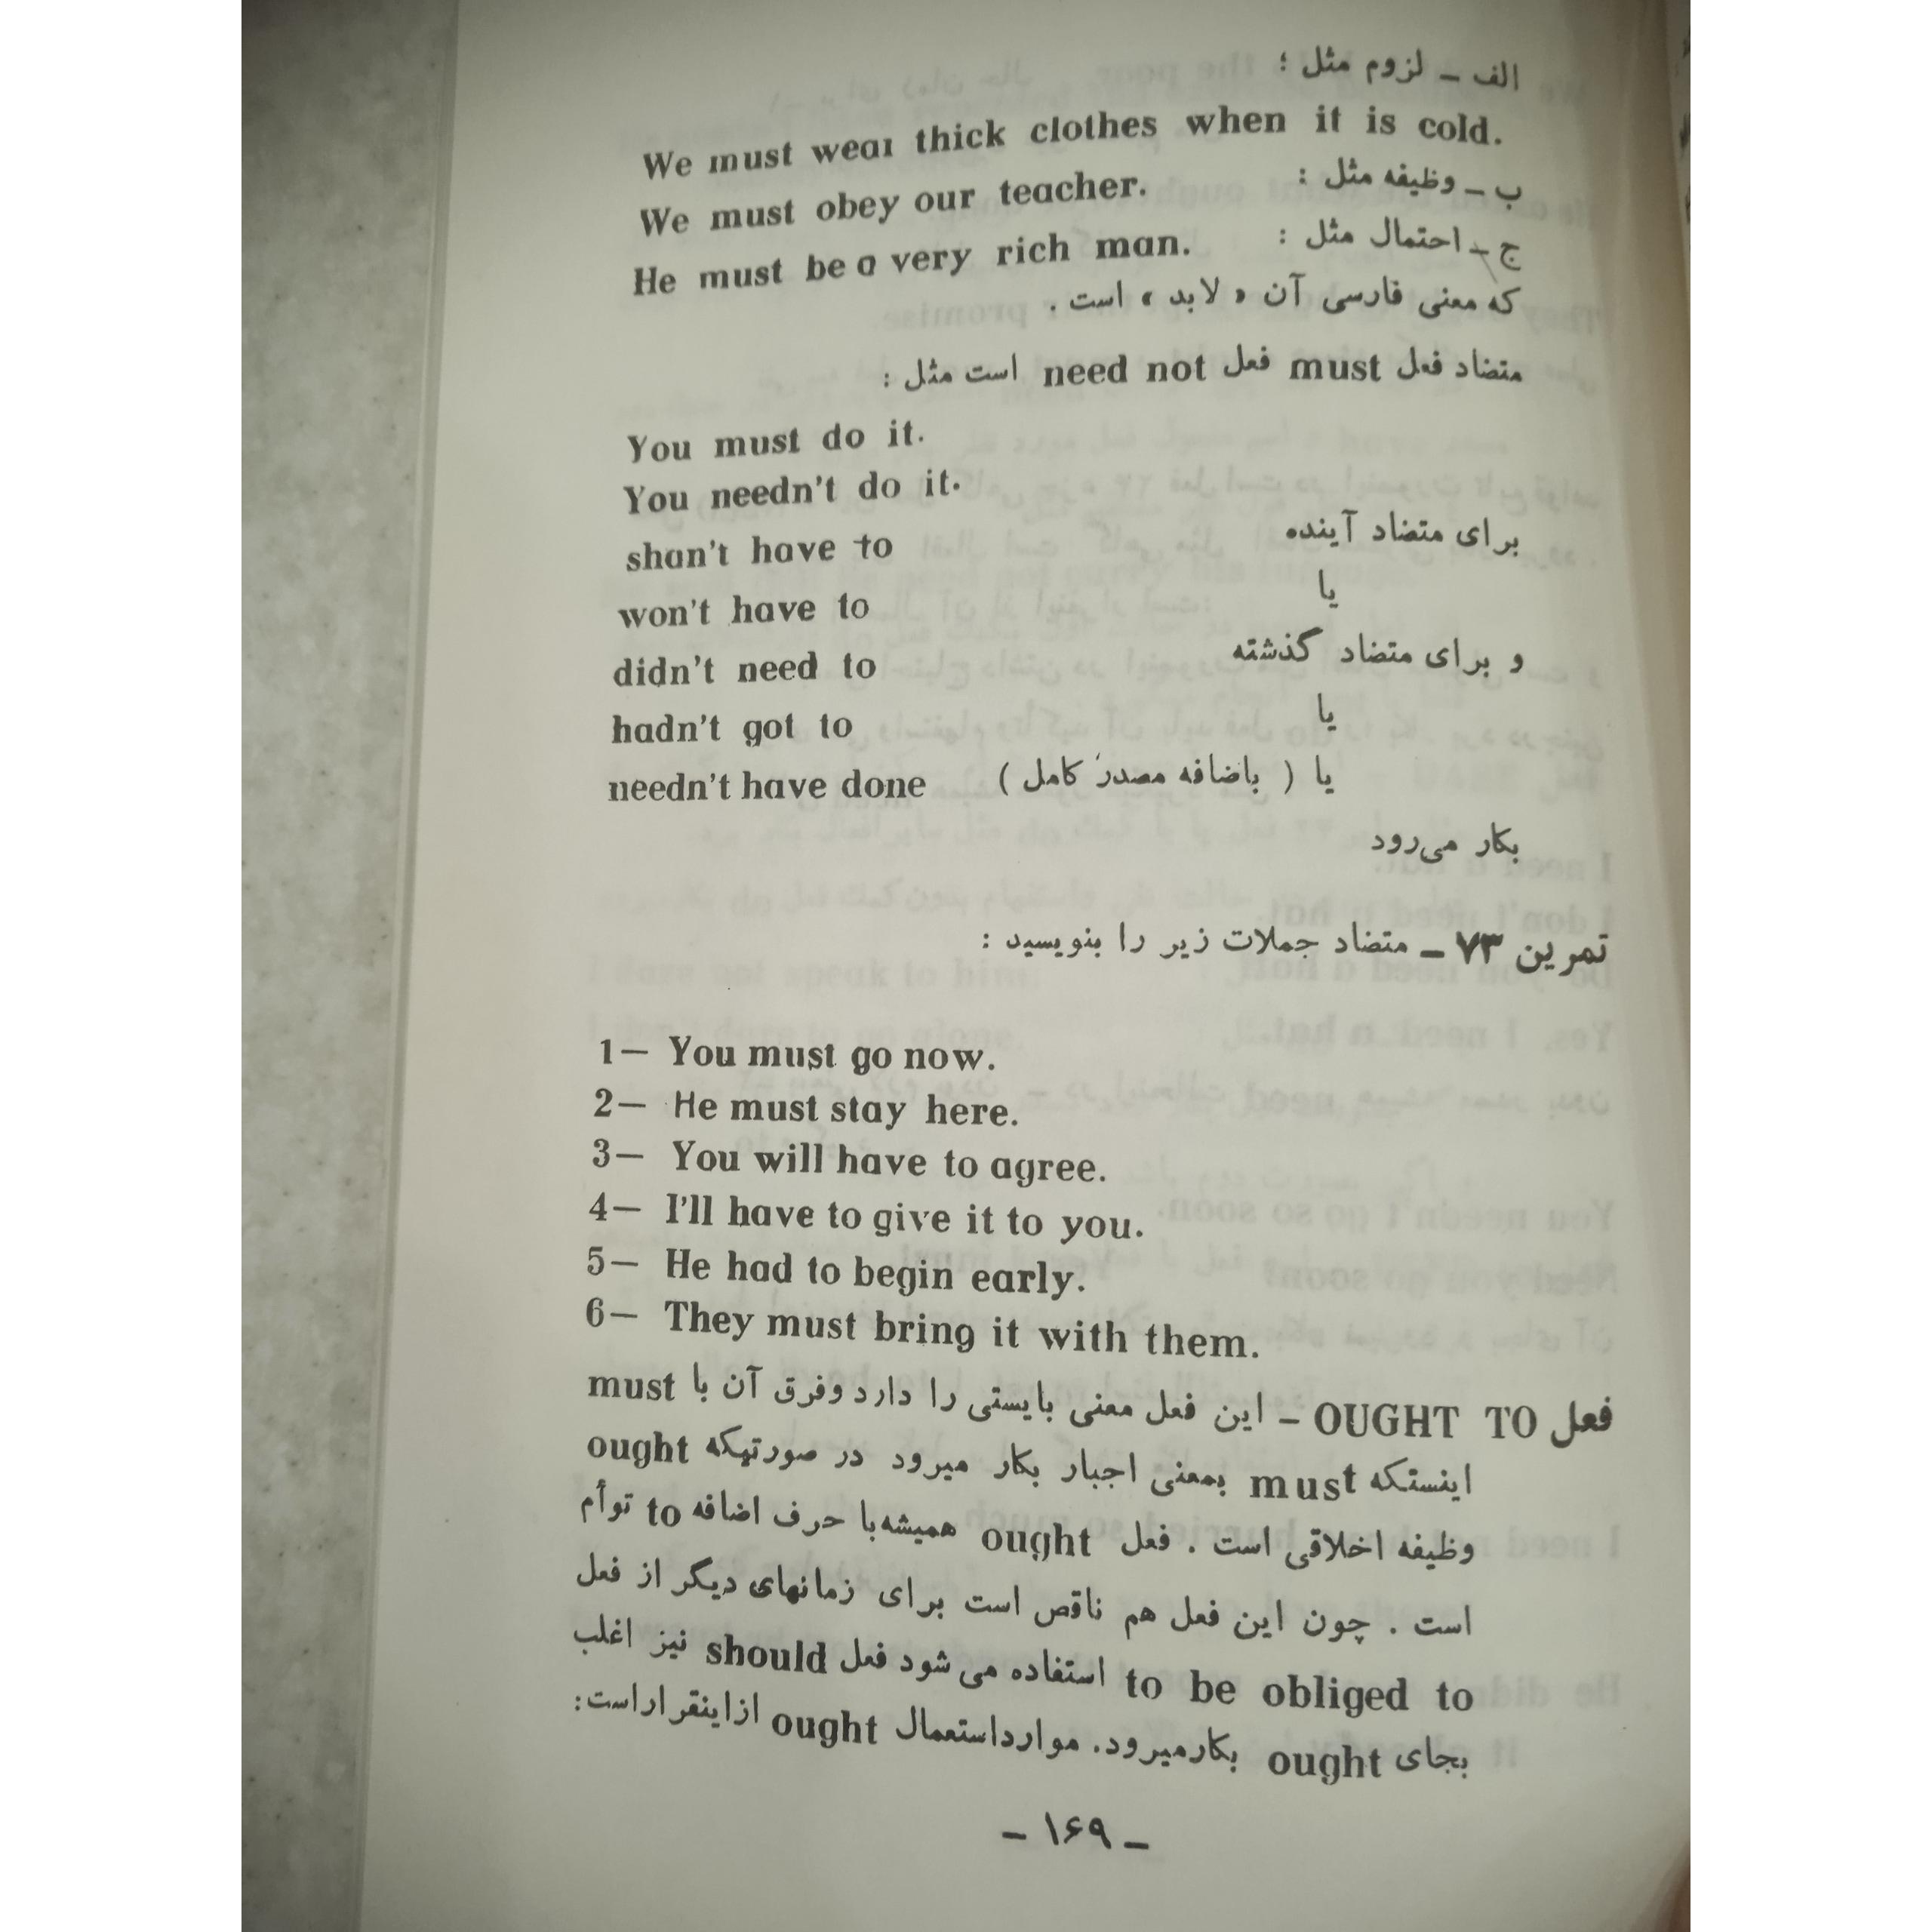 الف ــ لزوم مثل ؛
We must wear thick clothes when it is cold.
ب ــ وظیفه مثل :
We must obey our teacher.
ج ــ احتمال مثل :
He must be a very rich man.
که معنی فارسی آن « لابد » است .
متضاد فعل must فعل need not است مثل :
You must do it.
You needn't do it.
برای متضاد آینده shan't have to
یا won't have to
و برای متضاد گذشته didn't need to
یا hadn't got to
یا ( باضافه مصدر کامل ) needn't have done
بکار می‌رود
تمرین ۷۳ ــ متضاد جملات زیر را بنویسید :
1— You must go now.
2— He must stay here.
3— You will have to agree.
4— I'll have to give it to you.
5— He had to begin early.
6— They must bring it with them.
فعل OUGHT TO ــ این فعل معنی بایستی را دارد وفرق آن با must
اینستکه must بمعنی اجبار بکار میرود در صورتیکه ought
وظیفه اخلاقی است . فعل ought همیشه با حرف اضافه to توأم
است . چون این فعل هم ناقص است برای زمانهای دیگر از فعل
to be obliged to استفاده می شود فعل should نیز اغلب
بجای ought بکارمیرود. موارداستعمال ought ازاینقراراست:
ــ ۱۶۹ ــ